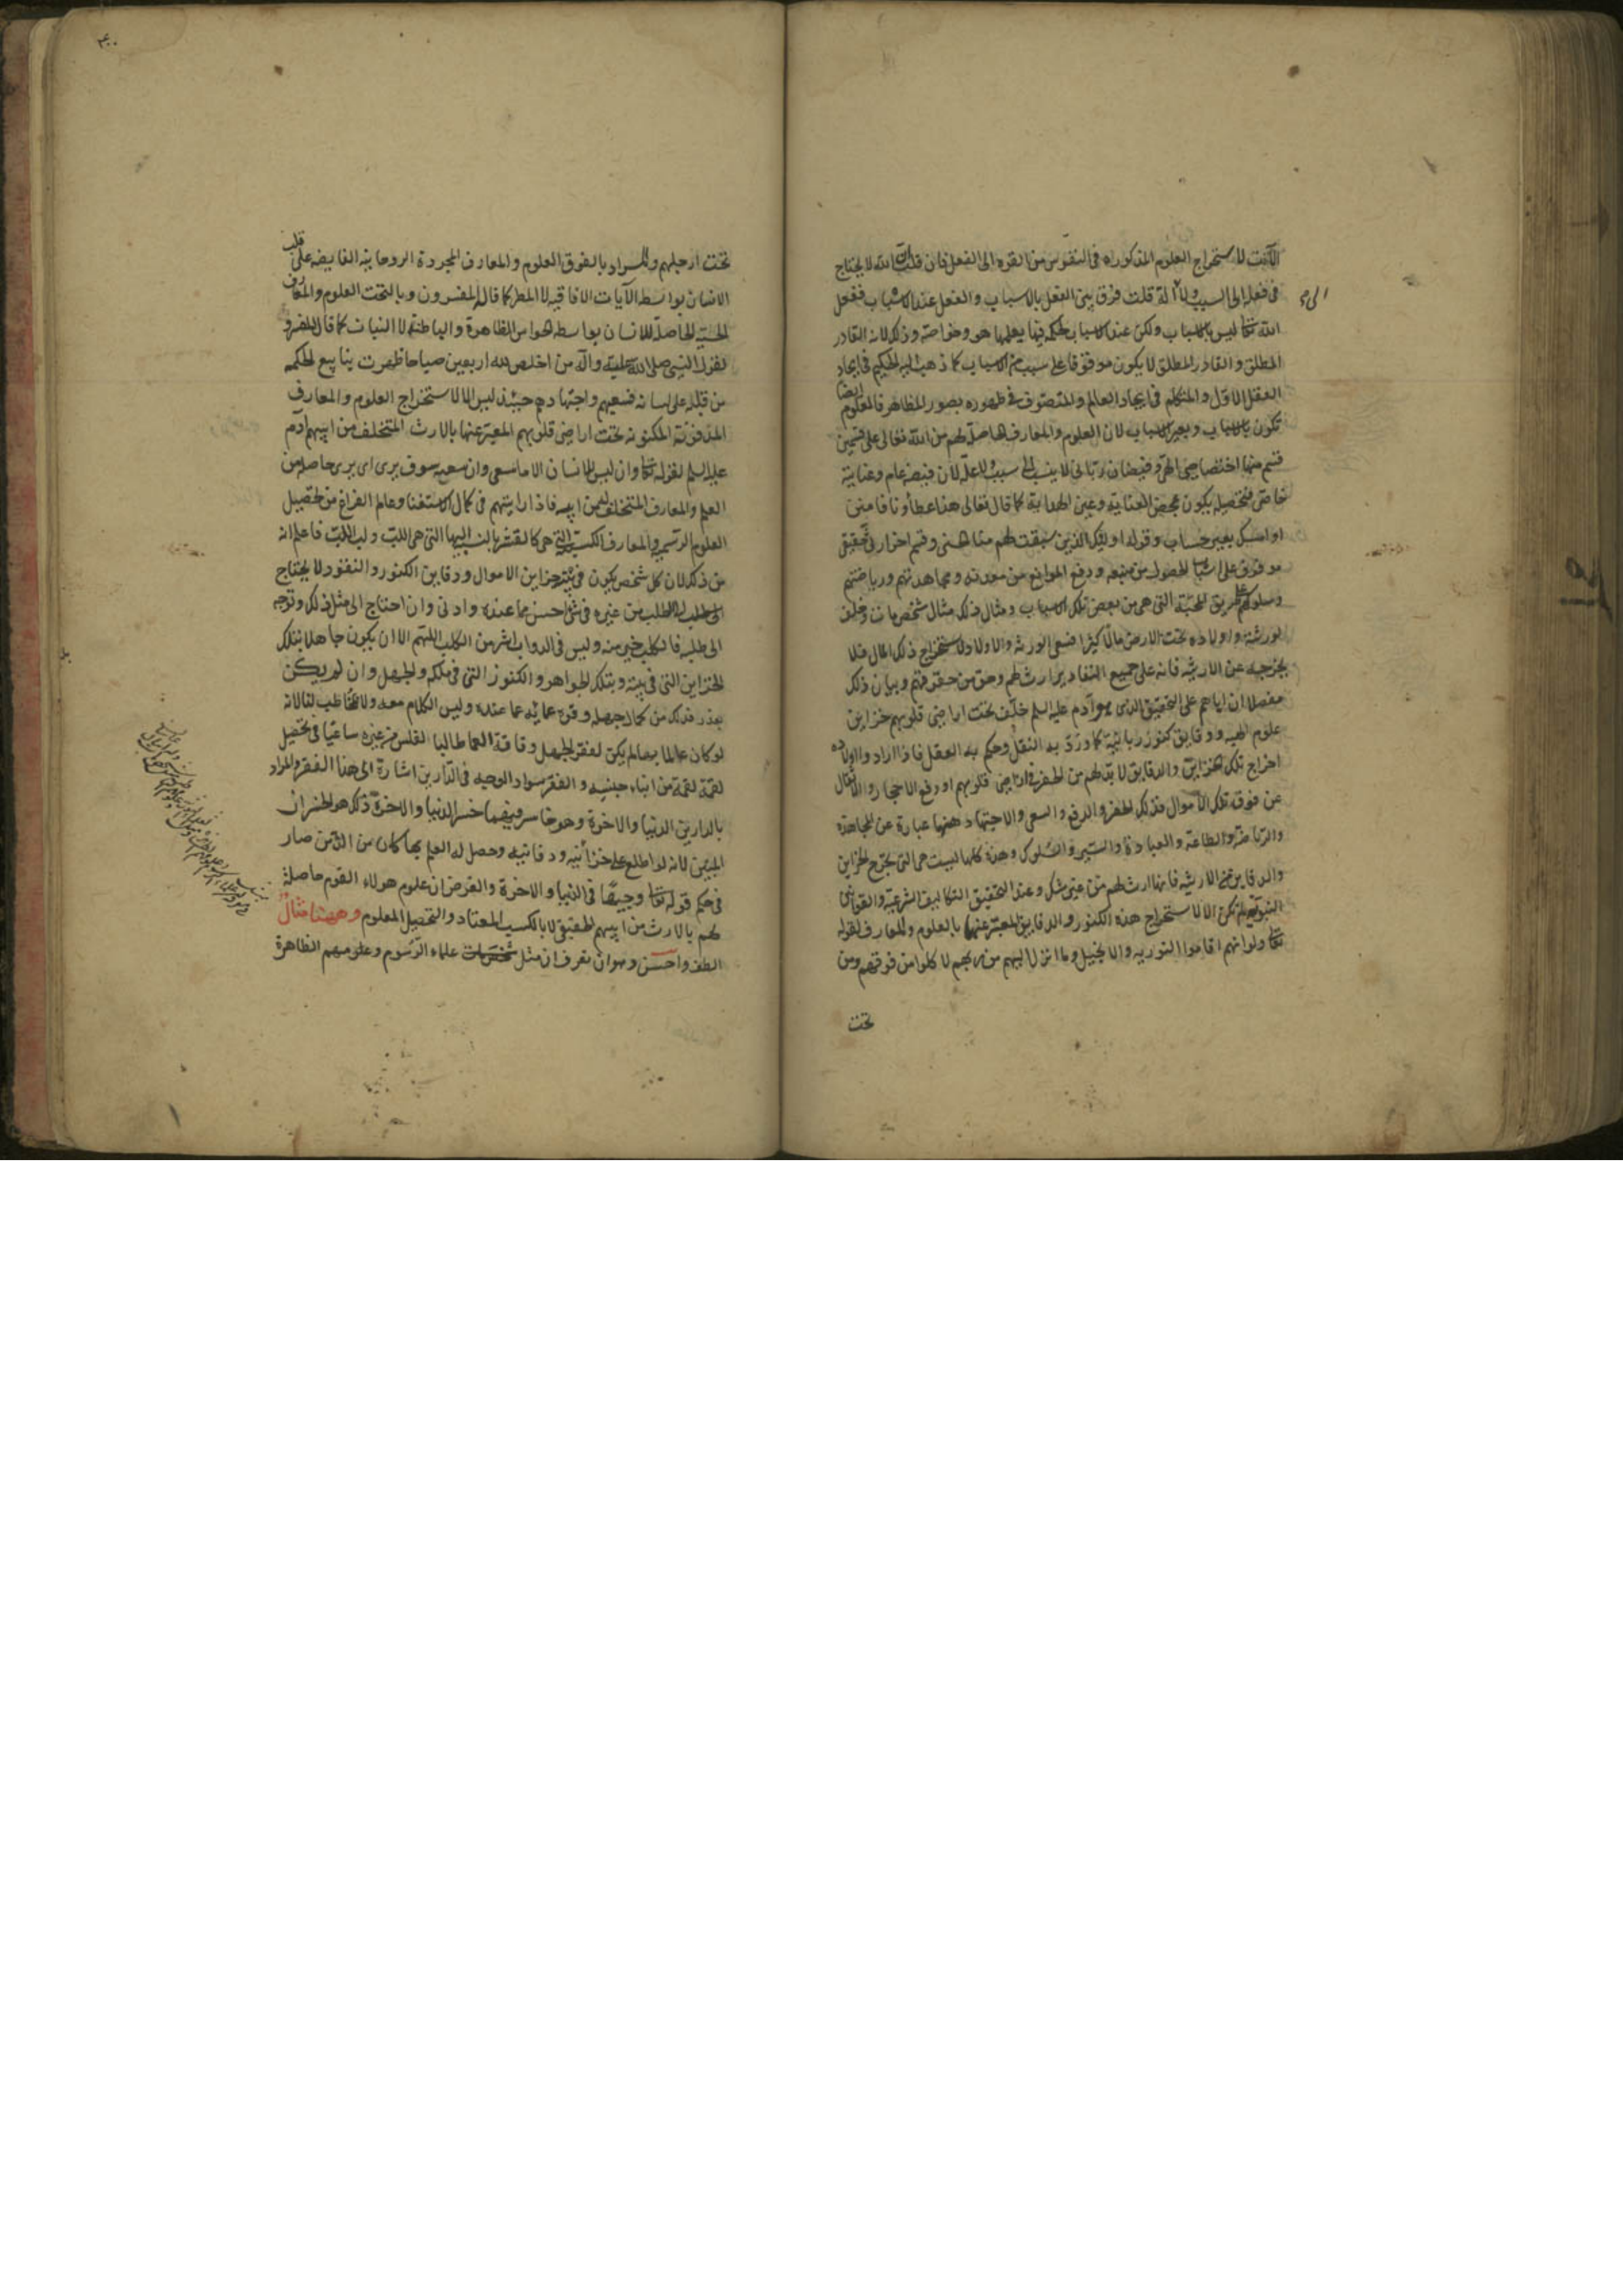 الآلات لاستخراج العلوم المذكورة فى النفوس من القوه الى الفعل فان قلت ان الله لا يحتاج
فى فعله الى السبب ولا آلة قلت فرق بين الفعل بالاسباب والفعل عند الاسباب ففعل
الله تعا ليس بالاسباب ولكن عند الاسباب لحكمه فيها يعلمها هو وخواصه وذلك لانه القادر
المطلق والقادر المطلق لا يكون موقوفا على سبب من الاسباب كما ذهب اليه الحكيم فى ايجاد
العقل الاول والمتكلم فى ايجاد العالم والمتصوف فى ظهوره بصور المظاهر فالعلوم ايضا
تكون بالاسباب وبغير الاسباب لان العلوم والمعارف الحاصلة لهم من الله تعالى على قسمين
قسم منها اختصاصى الهى وفيضان ربانى لا ينسب الى سبب ولا علة لان فيضه عام وعنايته
خاص فتحصيله يكون بمحض العناية وعين الهداية كما قال تعالى هذا عطاؤنا فامنن
او امسك بغير حساب وقوله اوليك الذين سبقت لهم منا الحسنى وقسم اخر ار فى تحقيق
موقوف على اسباب لحصوله من منبعه ودفع الموانع من معدنه ومجاهدتهم ورياضتهم
وسلوكهم على طريق المحبة التى هى من بعض تلك الاسباب ومثال ذلك مثال شخص مات وخلف
لورثته واولاده تحت الارض مالا كثيرا فسعى الورثه والاولاد لاستخراج ذلك المال فلا
يخرجه عن الارثيه فانه على جميع التقادير ارث لهم وحق من حقوقهم وبيان ذلك
مفصلا ان اباهم على التحقيق الذى هو آدم عليه السلم خلف تحت اراضى قلوبهم خزاين
علوم الهيه ودقايق كنوز ربانية كما ورد به النقل وحكم به العقل فاذا اراد واولاده
اخراج تلك الخزاين والدقايق لا بد لهم من الحفر فى اراضى قلوبهم او رفع الاحجار والاثقال
عن فوق تلك الاموال فذلك الحفر والدفع والسعى والاجتهاد ههنا عبارة عن المجاهدة
والرياضة والطاعة والعبادة والسير والسلوك وهذه كلها ليست هى التى يخرج الخزاين
والدقاين عن الارثيه فانها ارث لهم من غير شك وعند التحقيق التكاليف الشرعية والقوانين
النبوية لم تكن الا لاستخراج هذه الكنوز والدقايق المعبر عنها بالعلوم والمعارف لقوله
تعا ولو انهم اقاموا التوريه والانجيل وما انزل اليهم من ربهم لاكلوا من فوقهم ومن
تحت
٤٠٠
تحت ارجلهم والمراد بالفوق العلوم والمعارف المجردة الروحانيه الفايضه على قلب
الانسان بواسطه الآيات الافاقيه لا المطر كما قاله المفسرون وبالتحت العلوم والمعارف
الحسيه الحاصلة للانسان بواسطه الحواس الظاهرة والباطنة لا النبات كما قال المفسرون
لقول النبى صلى الله عليه وآله من اخلص لله اربعين صباحا ظهرت ينابيع الحكمه
من قلبه على لسانه فسعيهم واجتهادهم حينئذ ليس الا لاستخراج العلوم والمعارف
المدفونة المكنونه تحت اراضى قلوبهم المعبر عنها بالارث المتخلف من ابيهم آدم
عليه السلم لقوله تعا وان ليس للانسان الا ما سعى وان سعيه سوف يرى اى يرى حاصله من
العلم والمعارف المتخلف له من ابيه فاذا رايتهم فى كمال الاستغنا وعالم الفراغ من تحصيل
العلوم الرسميه والمعارف الكسبية التى هى كالقشر بالنسبة اليها التى هى اللب ولب اللب فاعلم انه
من ذلك لان كل شخص يكون فى بيته خزاين الاموال ودقاين الكنوز والنقود لا يحتاج
الى الطلب من غيره فى شئ احسن مما عنده وادنى وان احتاج الى مثل ذلك وتوجه
الى طلبه فالكلب خير منه وليس فى الدواب اشر من الكلب اللهم الا ان يكون جاهلا بتلك
الخزاين التى فى بيته وبتلك الجواهر والكنوز التى فى ملكه والجهل وان لم يكن
بعذر فذلك من كمال جهله وقوة عمائه عما عنده وليس الكلام معه ولا نخاطب لنا لانه
لو كان عالما بعالم يكن لفقر الجهل وفاقة العما طالبا الفلس من غيره ساعيا فى تحصيل
لقمة لقمة من ابناء جنسه والفقر سواد الوجه فى الدارين اشارة الى هذا الفقر والمراد
بالدارين الدنيا والاخرة وهو خاسر فيهما خسر الدنيا والاخرة ذلك هو الخسران
المبين لانه لو اطلع على خزائنه ودفائنه وحصل له العلم بها كان من الذين صار
فى حكم قوله تعا وجيها فى الدنيا والاخرة والغرض ان علوم هولاء القوم حاصلة
لهم بالارث من ابيهم الحقيقى لا بالكسب المعتاد والتحصيل المعلوم وههنا مثال
الطف واحسن وهو ان تعرف ان مثل علماء الرسوم وعلومهم الظاهرة